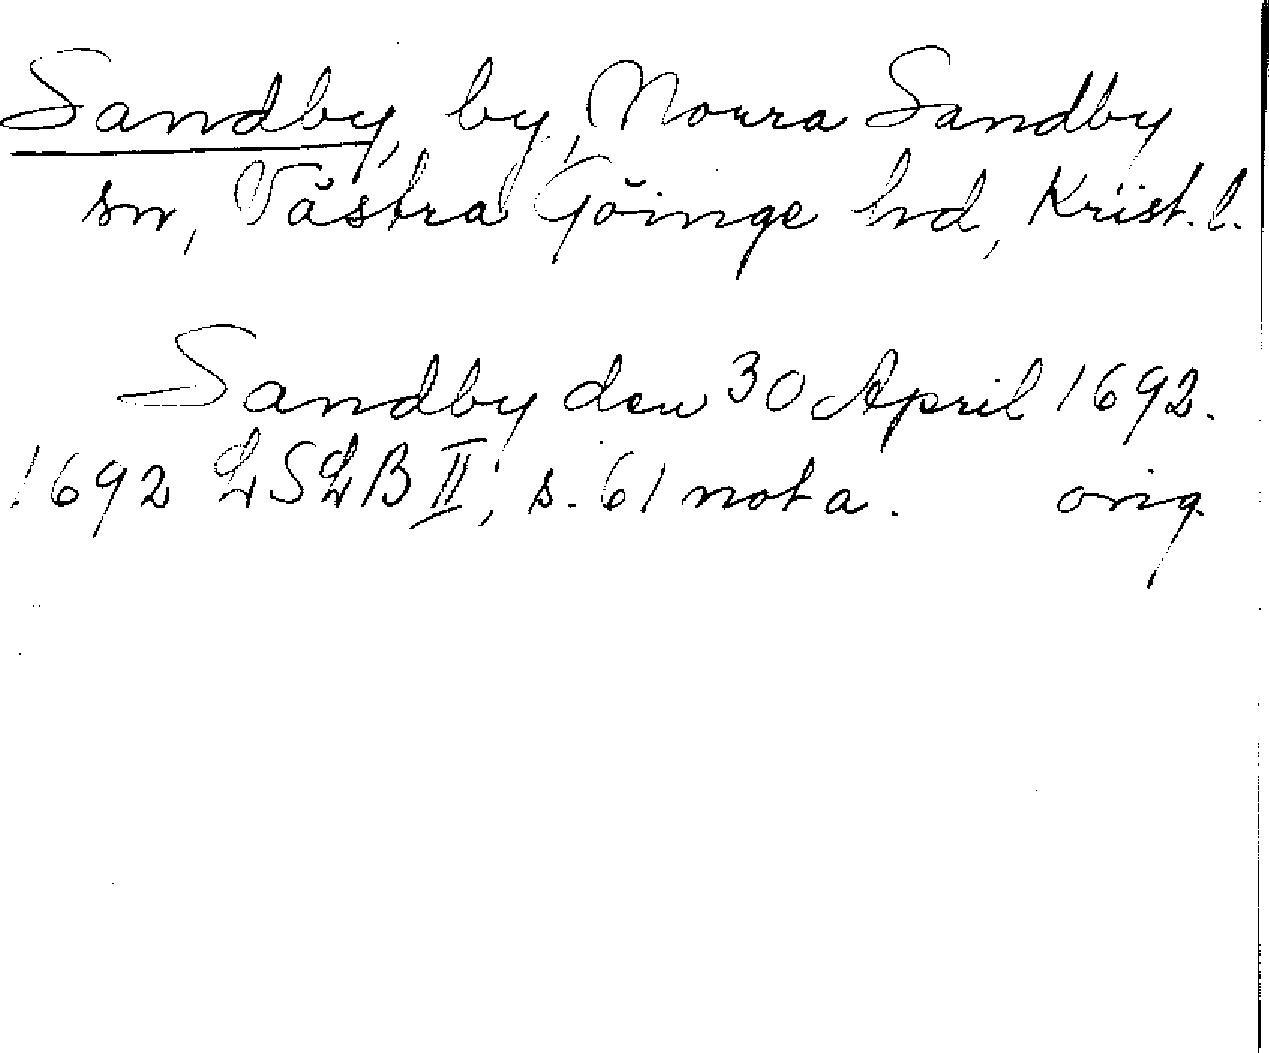 Sandby, by, Norra Sandby
sn, Västra Göinge hd, Krist. l.
Sandby den 30 April 1692.
1692 LSLB II, s. 61 not a. orig.